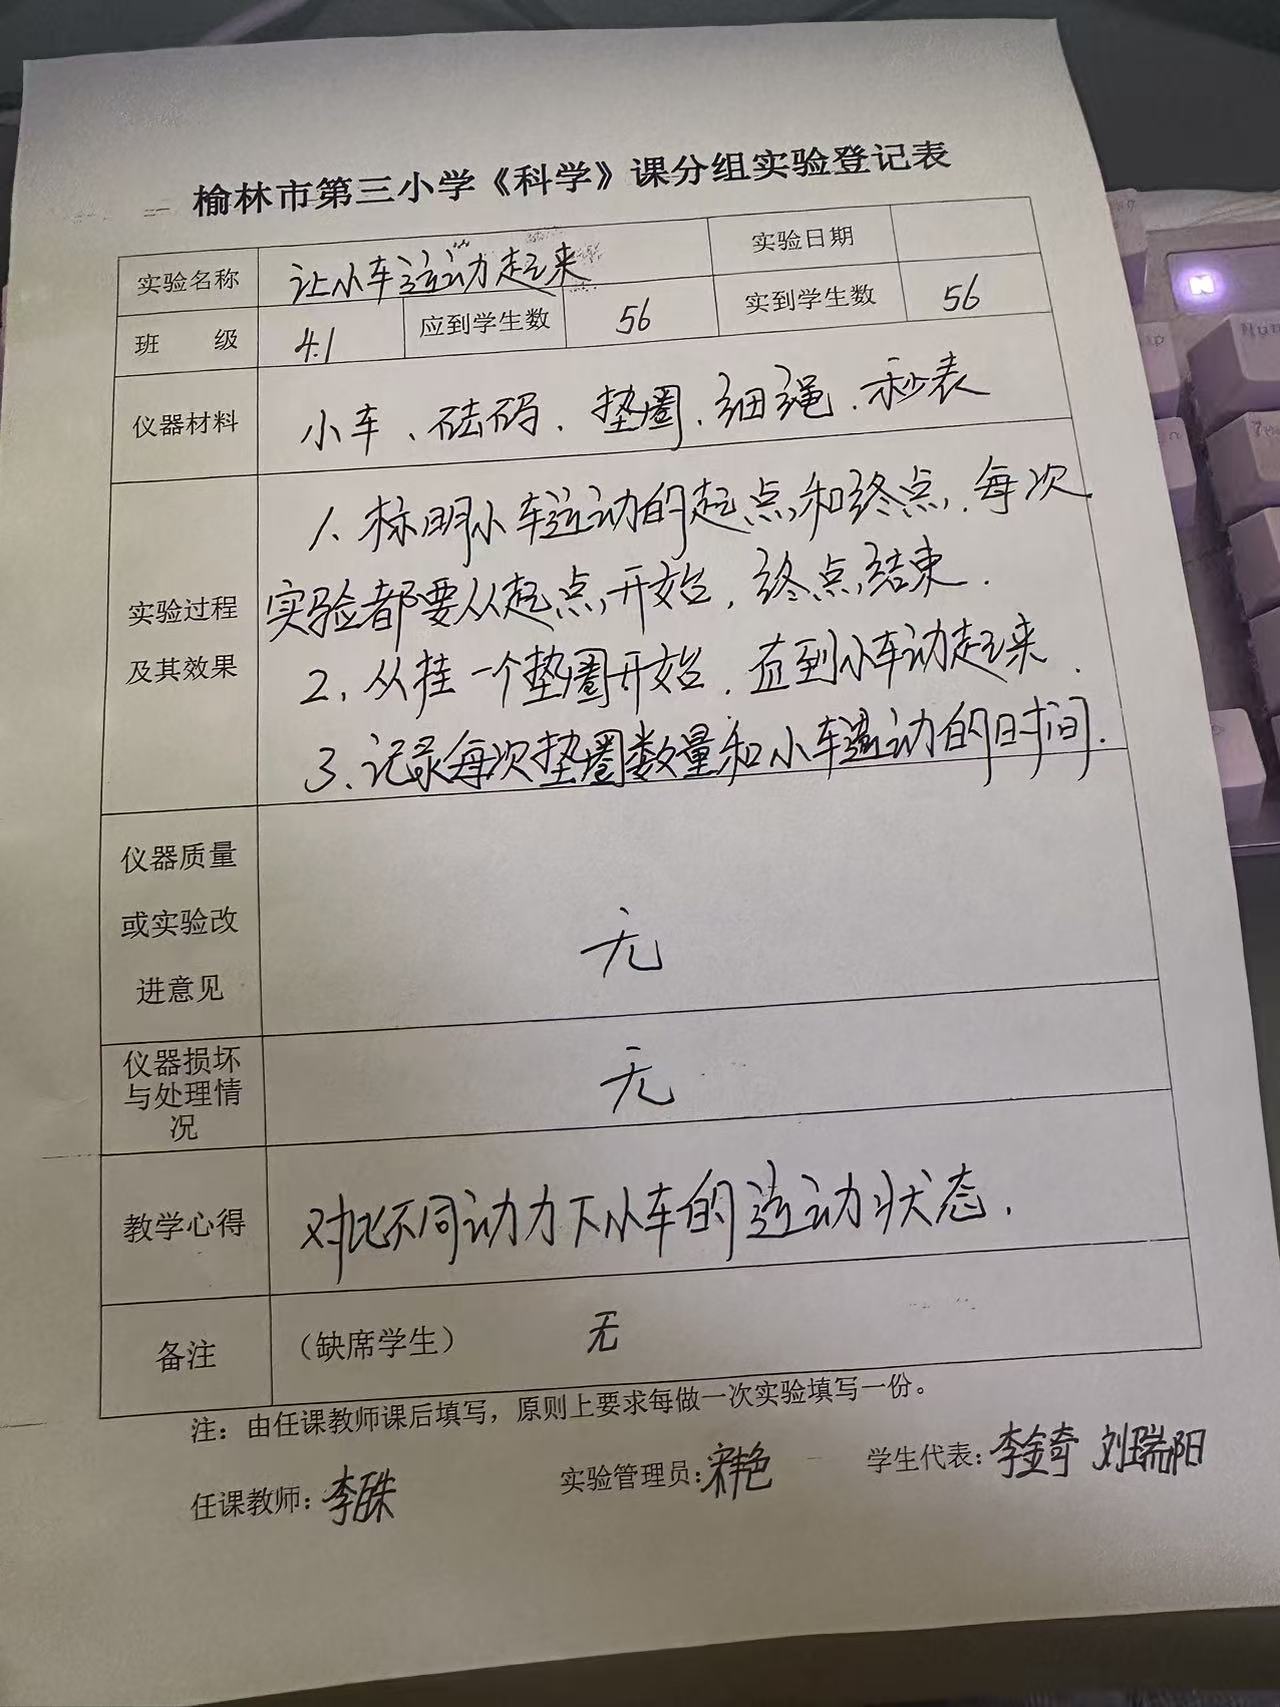 榆林市第三小学《科学》课分组实验登记表
实验名称 让小车运动起来 实验日期
班 级 4.1 应到学生数 56 实到学生数 56
仪器材料 小车、砝码、垫圈、细绳、秒表
实验过程及其效果
1、标明小车运动的起点和终点，每次
实验都要从起点开始，终点结束.
2、从挂一个垫圈开始，直到小车动起来.
3、记录每次垫圈数量和小车运动的时间.
仪器质量
或实验改
进意见
无
仪器损坏
与处理情
况
无
教学心得 对比不同动力下小车的运动状态.
备注 （缺席学生） 无
注：由任课教师课后填写，原则上要求每做一次实验填写一份。
任课教师：李 实验管理员： 学生代表：李金奇 刘瑞阳